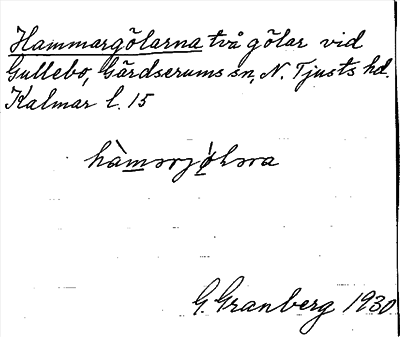 Hammargölarna två gölar vid
Gullebo, Gärdserums sn, N. Tjusts hd.
Kalmar l. 15
G. Granberg 1930.